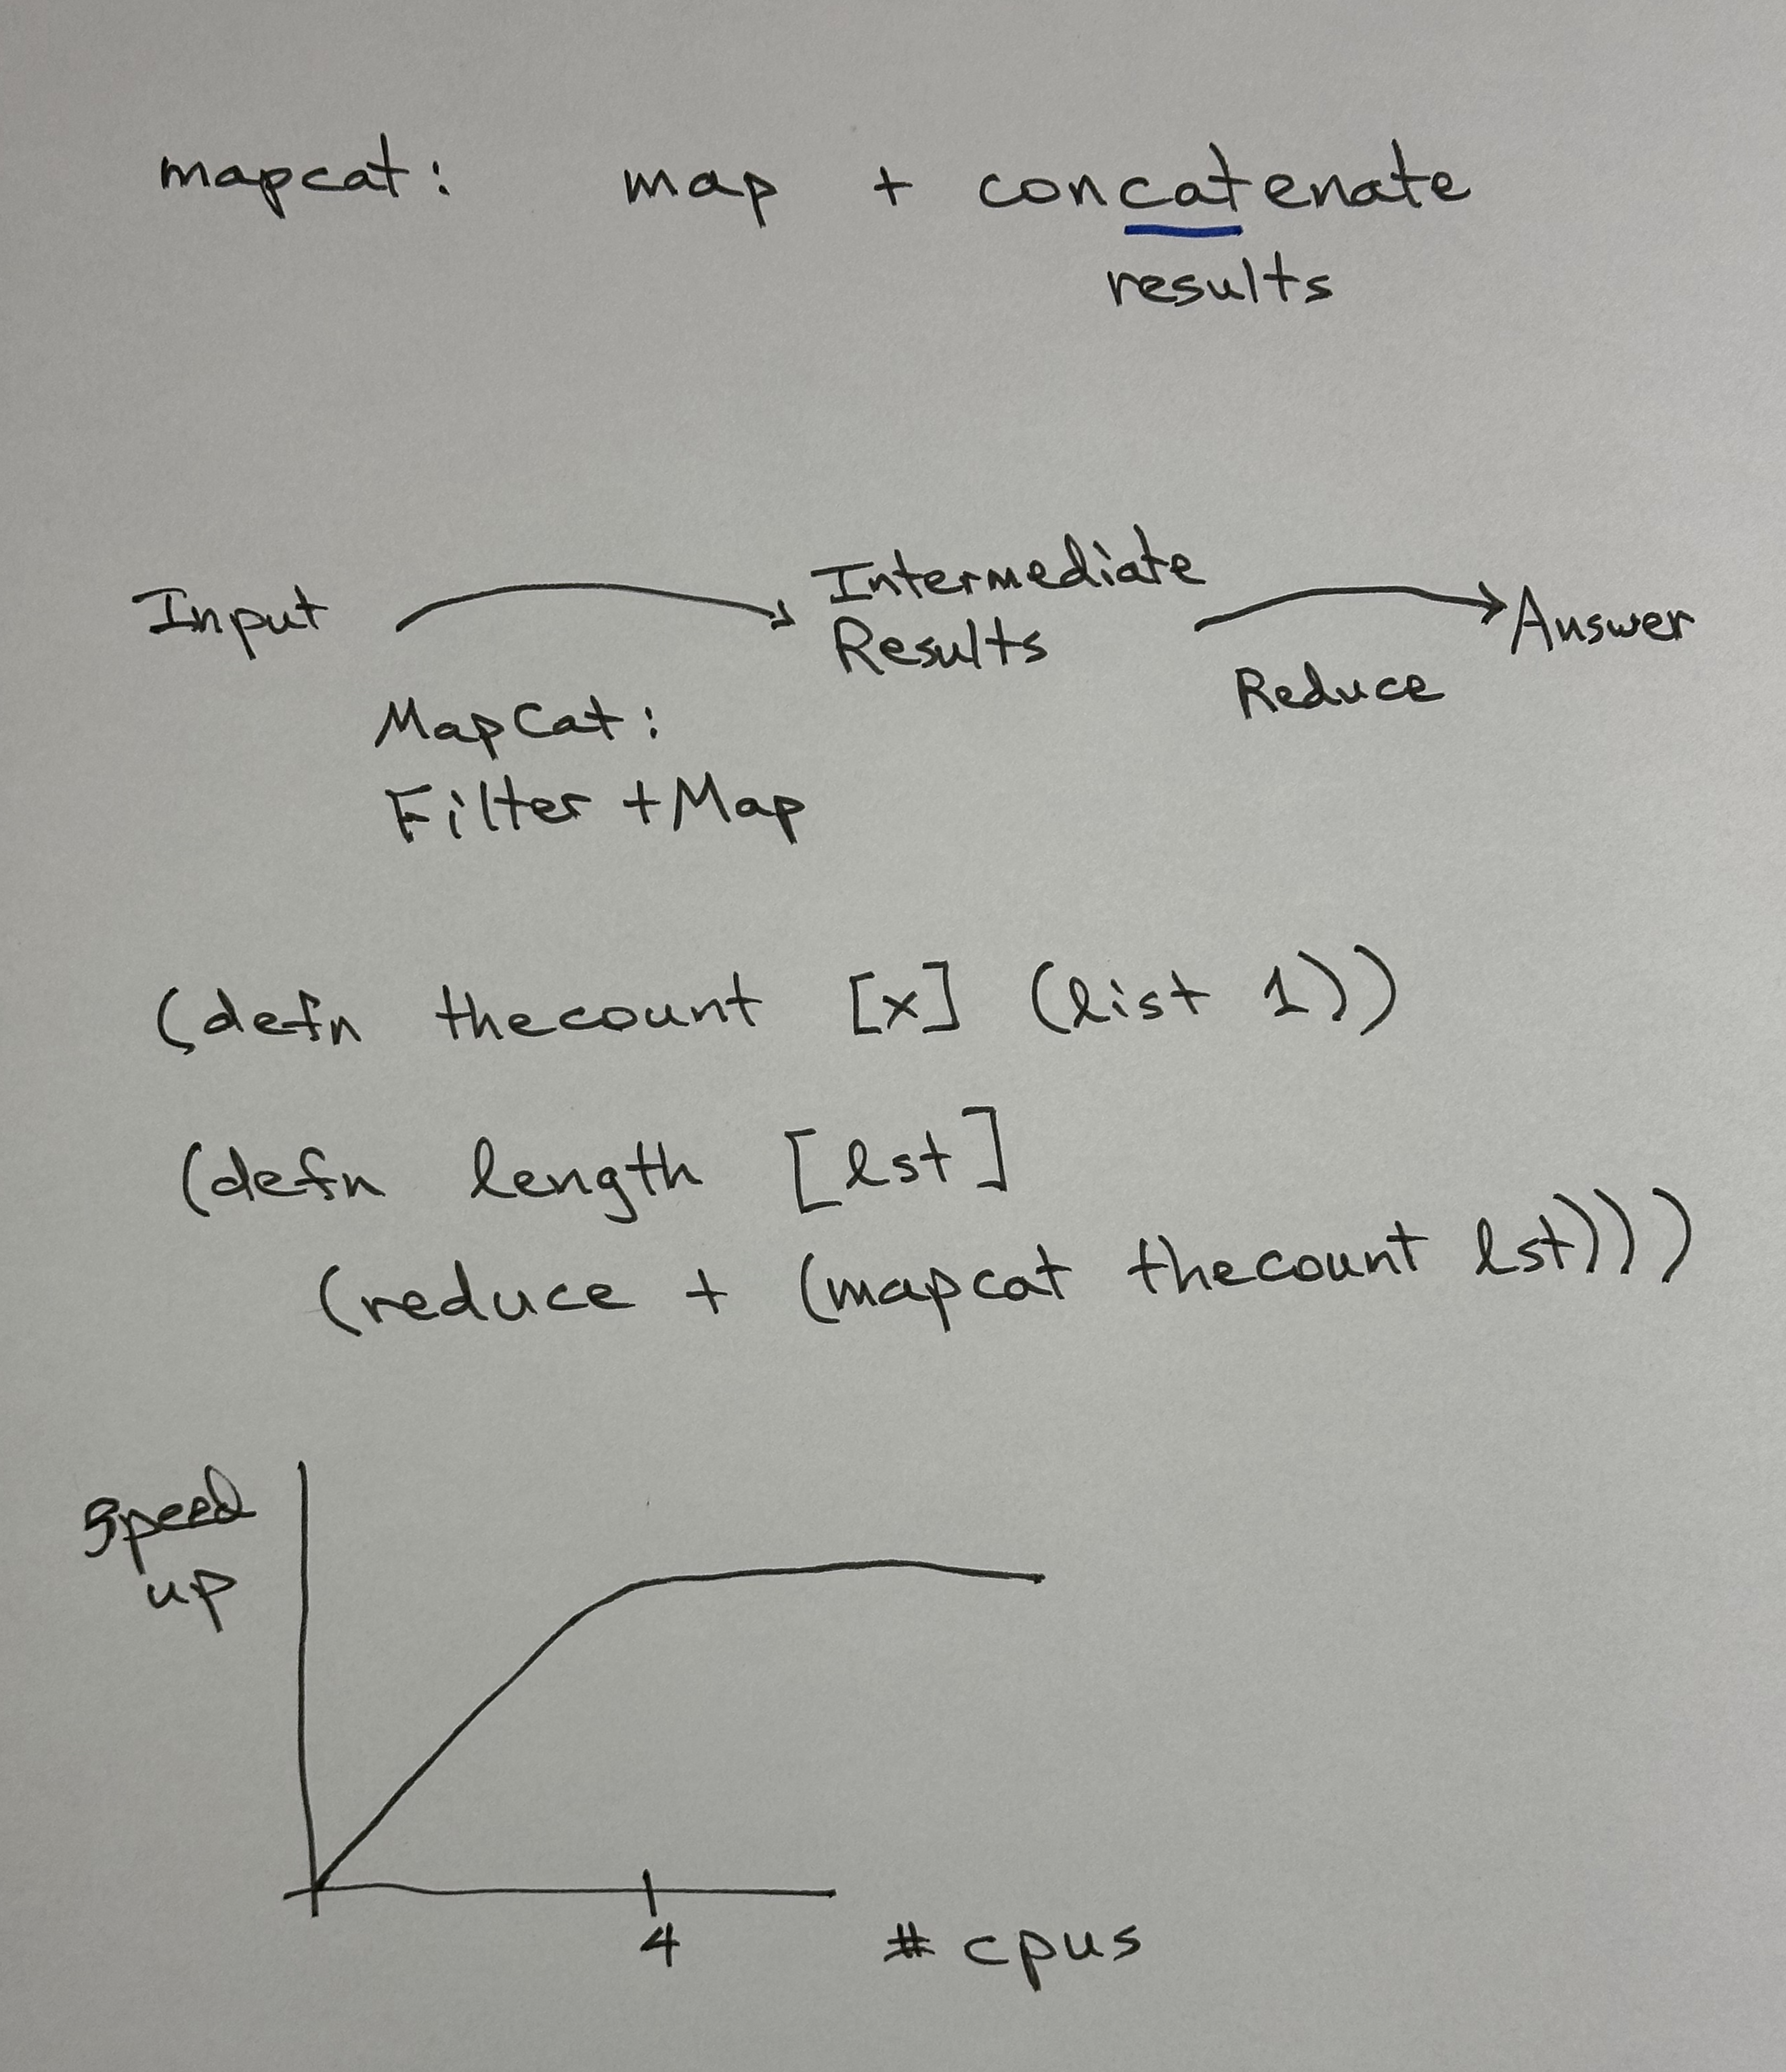 mapcat: map + concatenate
results
Input Intermediate
Results Answer
Reduce
MapCat:
Filter + Map
(defn thecount [x] (list 1))
(defn length [lst]
(reduce + (mapcat thecount lst)))
Speed
up
4 # cpus